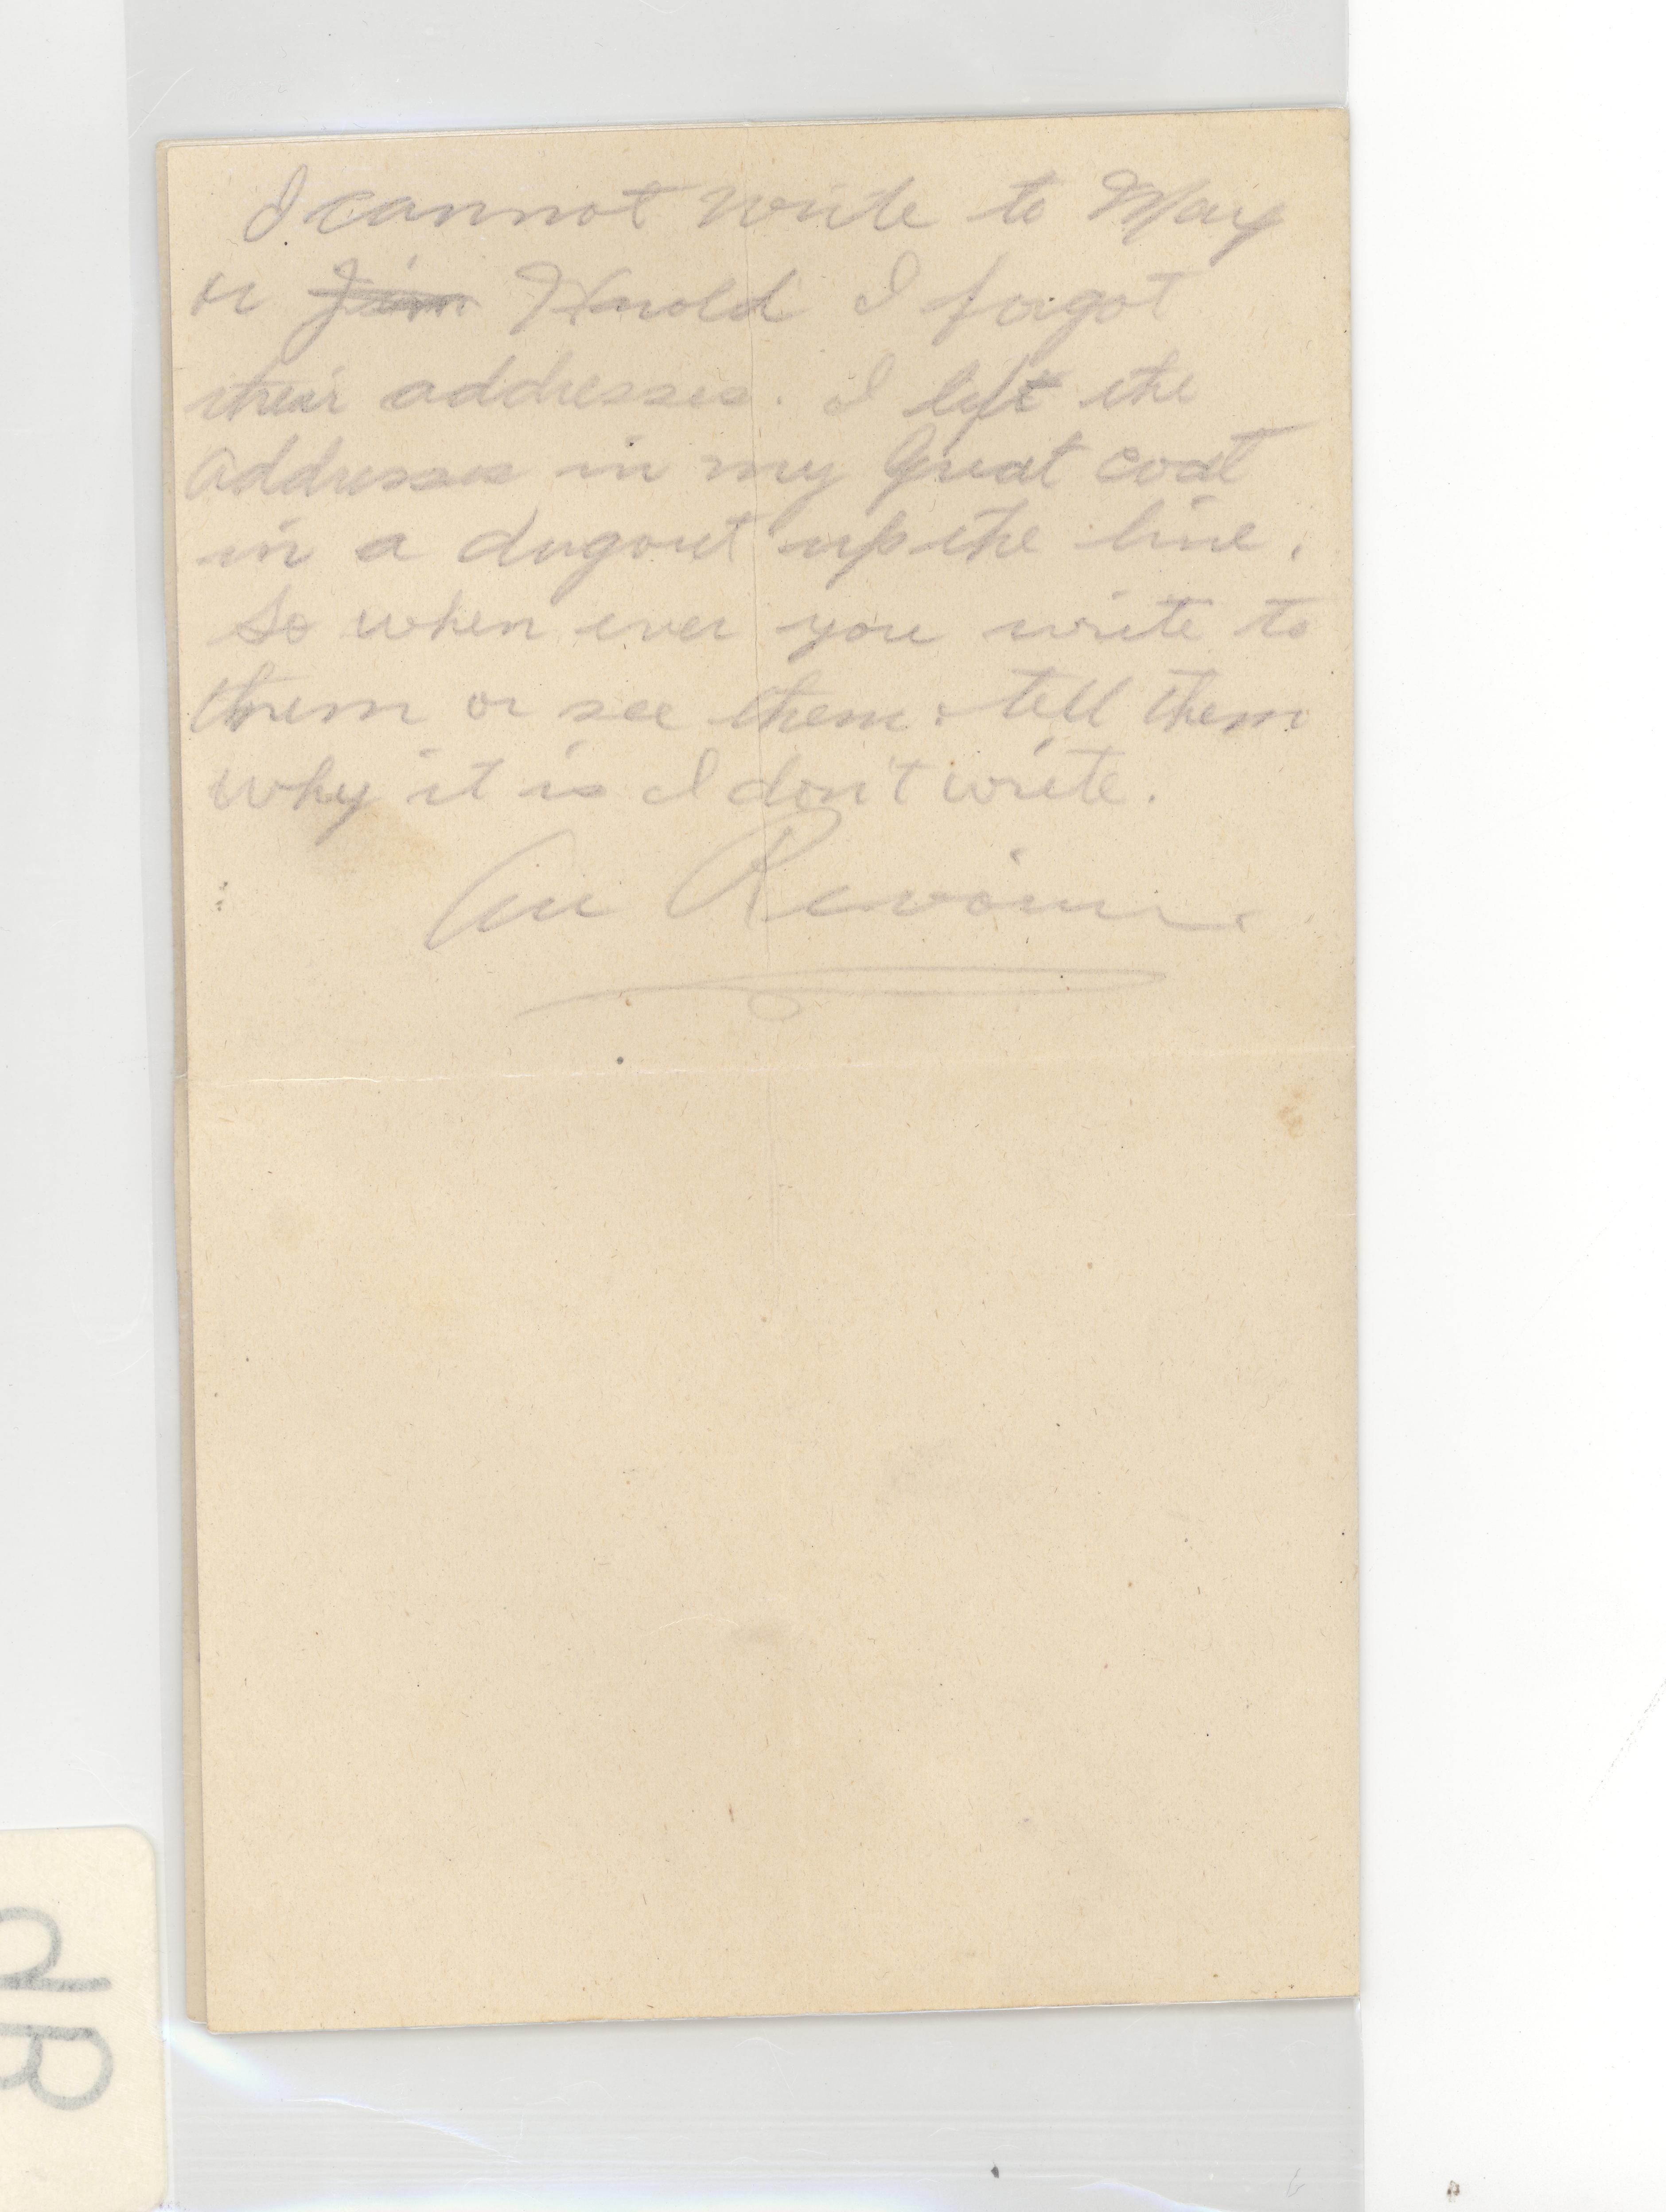 I cannot write to May
or ~~Jim~~ Harold I forgot
their addresses. I left the
addresses in my Great coat
in a dugout up the line.
So when ever you write to
them or see them. tell them
why it is I don't write.
Au Revoir.